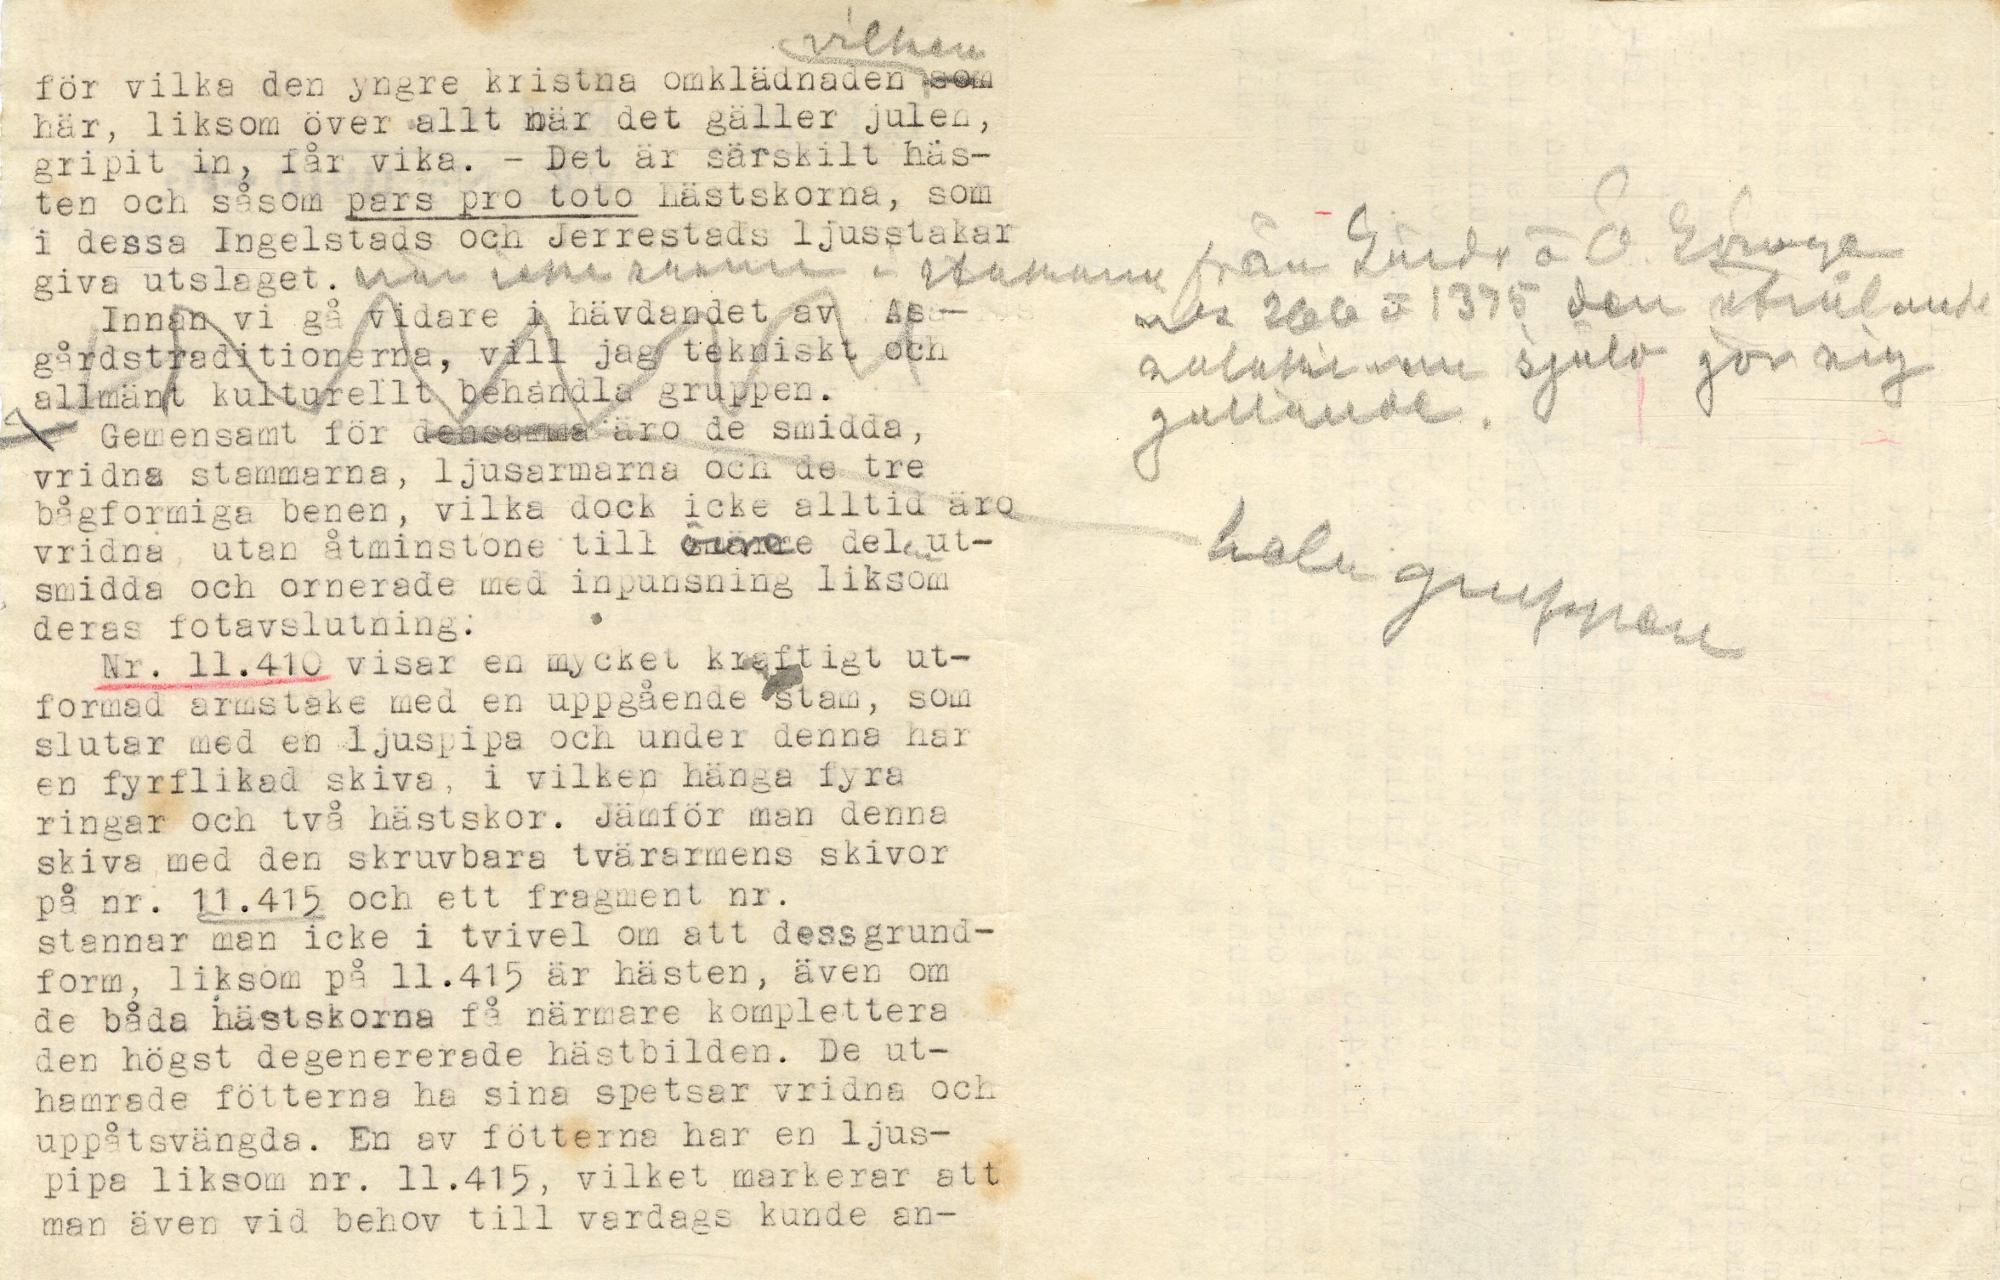 vilken
för vilka den yngre kristna omklädnaden som
här, liksom över allt när det gäller julen,
gripit in, får vika. - Det är särskilt häs-
ten och såsom pars pro toto hästskorna, som
i dessa Ingelstads och Jerrestads ljusstakar
giva utslaget. när icke samma - stakarna från Gärds o Ö. Göinge
nrs 266 o 1375 den strålande
själv gör sig
gällande.
Innan vi gå vidare i hävdandet av As-
gårdstraditionerna, vill jag tekniskt och
allmänt kulturellt behandla gruppen.
Gemensamt för densamma äro de smidda,
hela gruppen
vridna stammarna, ljusarmarna och de tre
bågformiga benen, vilka dock icke alltid äro
vridna utan åtminstone till övre delen ut-
smidda och ornerade med inpunsning liksom
deras fotavslutning.
Nr. 11.410 visar en mycket kraftigt ut-
formad armstake med en uppgående stam, som
slutar med en ljuspipa och under denna har
en fyrflikad skiva, i vilken hänga fyra
ringar och två hästskor. Jämför man denna
skiva med den skruvbara tvärarmens skivor
på nr. 11.415 och ett fragment nr.
stannar man icke i tvivel om att dess grund-
form, liksom på 11.415 är hästen, även om
de båda hästskorna få närmare komplettera
den högst degenererade hästbilden. De ut-
hamrade fötterna ha sina spetsar vridna och
uppåtsvängda. En av fötterna har en ljus-
pipa liksom nr. 11.415, vilket markerar att
man även vid behov till vardags kunde an-